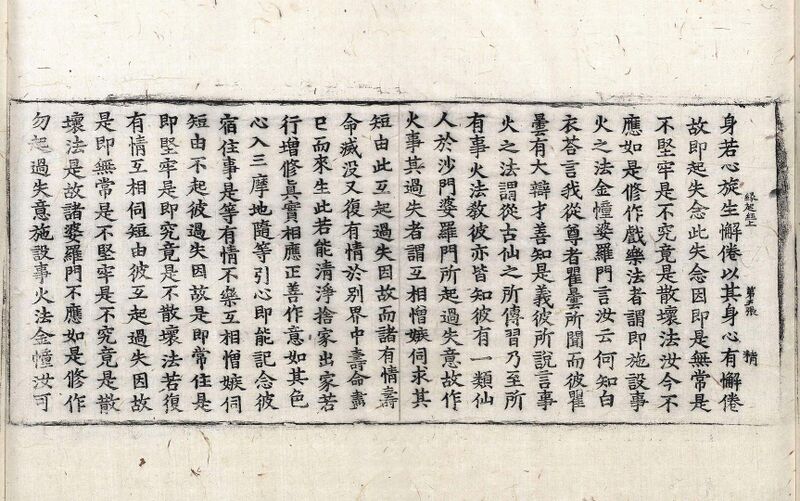 緣起經上 第五張 精
身若心旋生懈倦以其身心有懈倦
故即起失念此失念因即是無常是
不堅牢是不究竟是散壞法汝今不
應如是修作戲樂法者謂即施設事
火之法金幢婆羅門言汝云何知白
衣荅言我從尊者瞿曇所聞而彼瞿
曇有大辯才善知是義彼所說言事
火之法謂從古仙之所傳習乃至所
有事火法教彼亦皆知彼有一類仙
人於沙門婆羅門所起過失意故作
火事其過失者謂互相憎嫉伺求其
短由此互起過失因故而諸有情壽
命滅没又復有情於別界中壽命盡
已而來生此若能清淨捨家出家若
行增修真實相應正善作意如其色
心入三摩地隨等引心即能記念彼
宿住事是等有情不樂互相憎嫉伺
短由不起彼過失因故是即常住是
即堅牢是即究竟是不散壞法若復
有情互相伺短由彼互起過失因故
是即無常是不堅牢是不究竟是散
壞法是故諸婆羅門不應如是修作
勿起過失意施設事火法金幢汝可